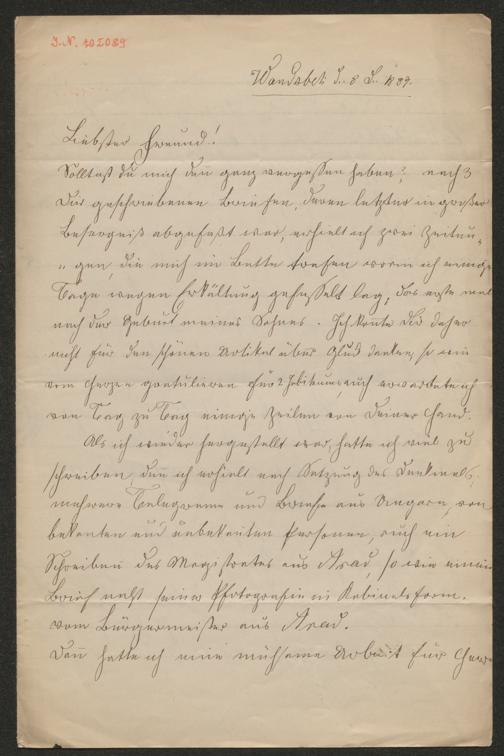 J.N. 102089
Wandsbek d. 8 1889.
Liebster Freund!
Solltest du mich den ganz vergessen haben? nach 3
Dir geschriebenen Briefen, deren letzter in großer
Besorgniß abgefaßt war, erhielt ich zwei Zeitun„
„gen, die mich im Bette trafen worin ich einige
Tage wegen Erkältung gefesselt lag, das erste mal
nach der Geburt meines Sohnes. Ich konte Dir daher
nicht für den schönen Artikel über danken, so wie
vom Herzen gratuliren für 2 Jubiläum, auch erwartete ich
von Tag zu Tag einige Zeilen von Deiner Hand.
Als ich wieder hergestellt war, hatte ich viel zu
schreiben, den ich erhielt nach Setzung des Denkmals,
mehrere Telegrame und Briefe aus Ungarn, von
bekanten und unbekanten Personen, auch ein
Schreiben des Magistrates aus Arad, so wie einen
Brief nebst seiner Photografie in Kabinetsform.
vom Bürgermeister aus Arad.
Dan hatte ich eine mühsame Arbeit für Herrn